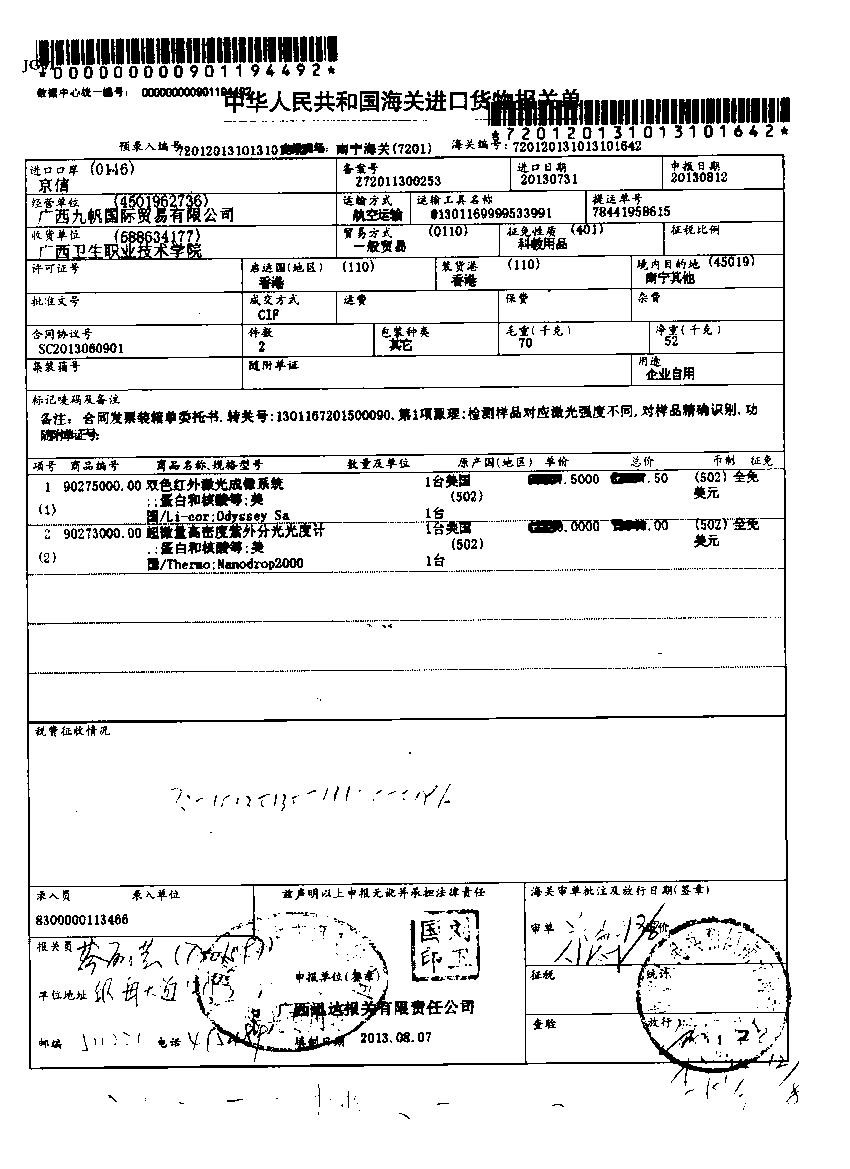 *0000000000901194492*
数据中心统一编号: 0000000000901194492
中华人民共和国海关进口货物报关单
*720120131013101642*
预录入编号: 南宁海关(7201) 海关编号:720120131013101642
进口口岸 (0146) 备案号 进口日期 申报日期
Z72011300253 20130731 20130812
经营单位 (4501962736) 运输方式 运输工具名称 提运单号
广西九帆国际贸易有限公司 航空运输 @1301169999533991 78441958615
收货单位 (688634177) 贸易方式 (0110) 征免性质 (401) 征税比例
广西卫生职业技术学院 一般贸易 科教用品
许可证号 启运国(地区) (110) 装货港 (110) 境内目的地 (45019)
香港 香港 南宁其他
批准文号 成交方式 运费 保费 杂费
CIF
合同协议号 件数 包装种类 毛重(千克) 净重(千克)
SC2013060901 2 其它 70 52
集装箱号 随附单证 用途
企业自用
标记唛码及备注
备注: 合同发票装箱单委托书,转关号:1301167201500090,第1项原理:检测样品对应激光强度不同,对样品精确识别,功
随附单证号:
项号 商品编号 商品名称、规格型号 数量及单位 原产国(地区) 单价 总价 币制 征免
1 90275000.00 双色红外激光成像系统 1台美国 .5000 .50 (502) 全免
(1) ;;蛋白和核酸等;美 (502) 美元
国/Li-cor;Odyssey Sa 1台
2 90273000.00 超微量高密度紫外分光光度计 1台美国 .0000 .00 (502) 全免
(2) ;;蛋白和核酸等;美 (502) 美元
国/Thermo;Nanodrop2000 1台
税费征收情况
录入员 录入单位 兹声明以上申报无讹并承担法律责任 海关审单批注及放行日期(签章)
8300000113466
刘卫国印
报关员 审单 审价
申报单位(签章)
单位地址 征税 统计
广西通达报关有限责任公司
查验 放行
邮编 电话 填制日期 2013.08.07